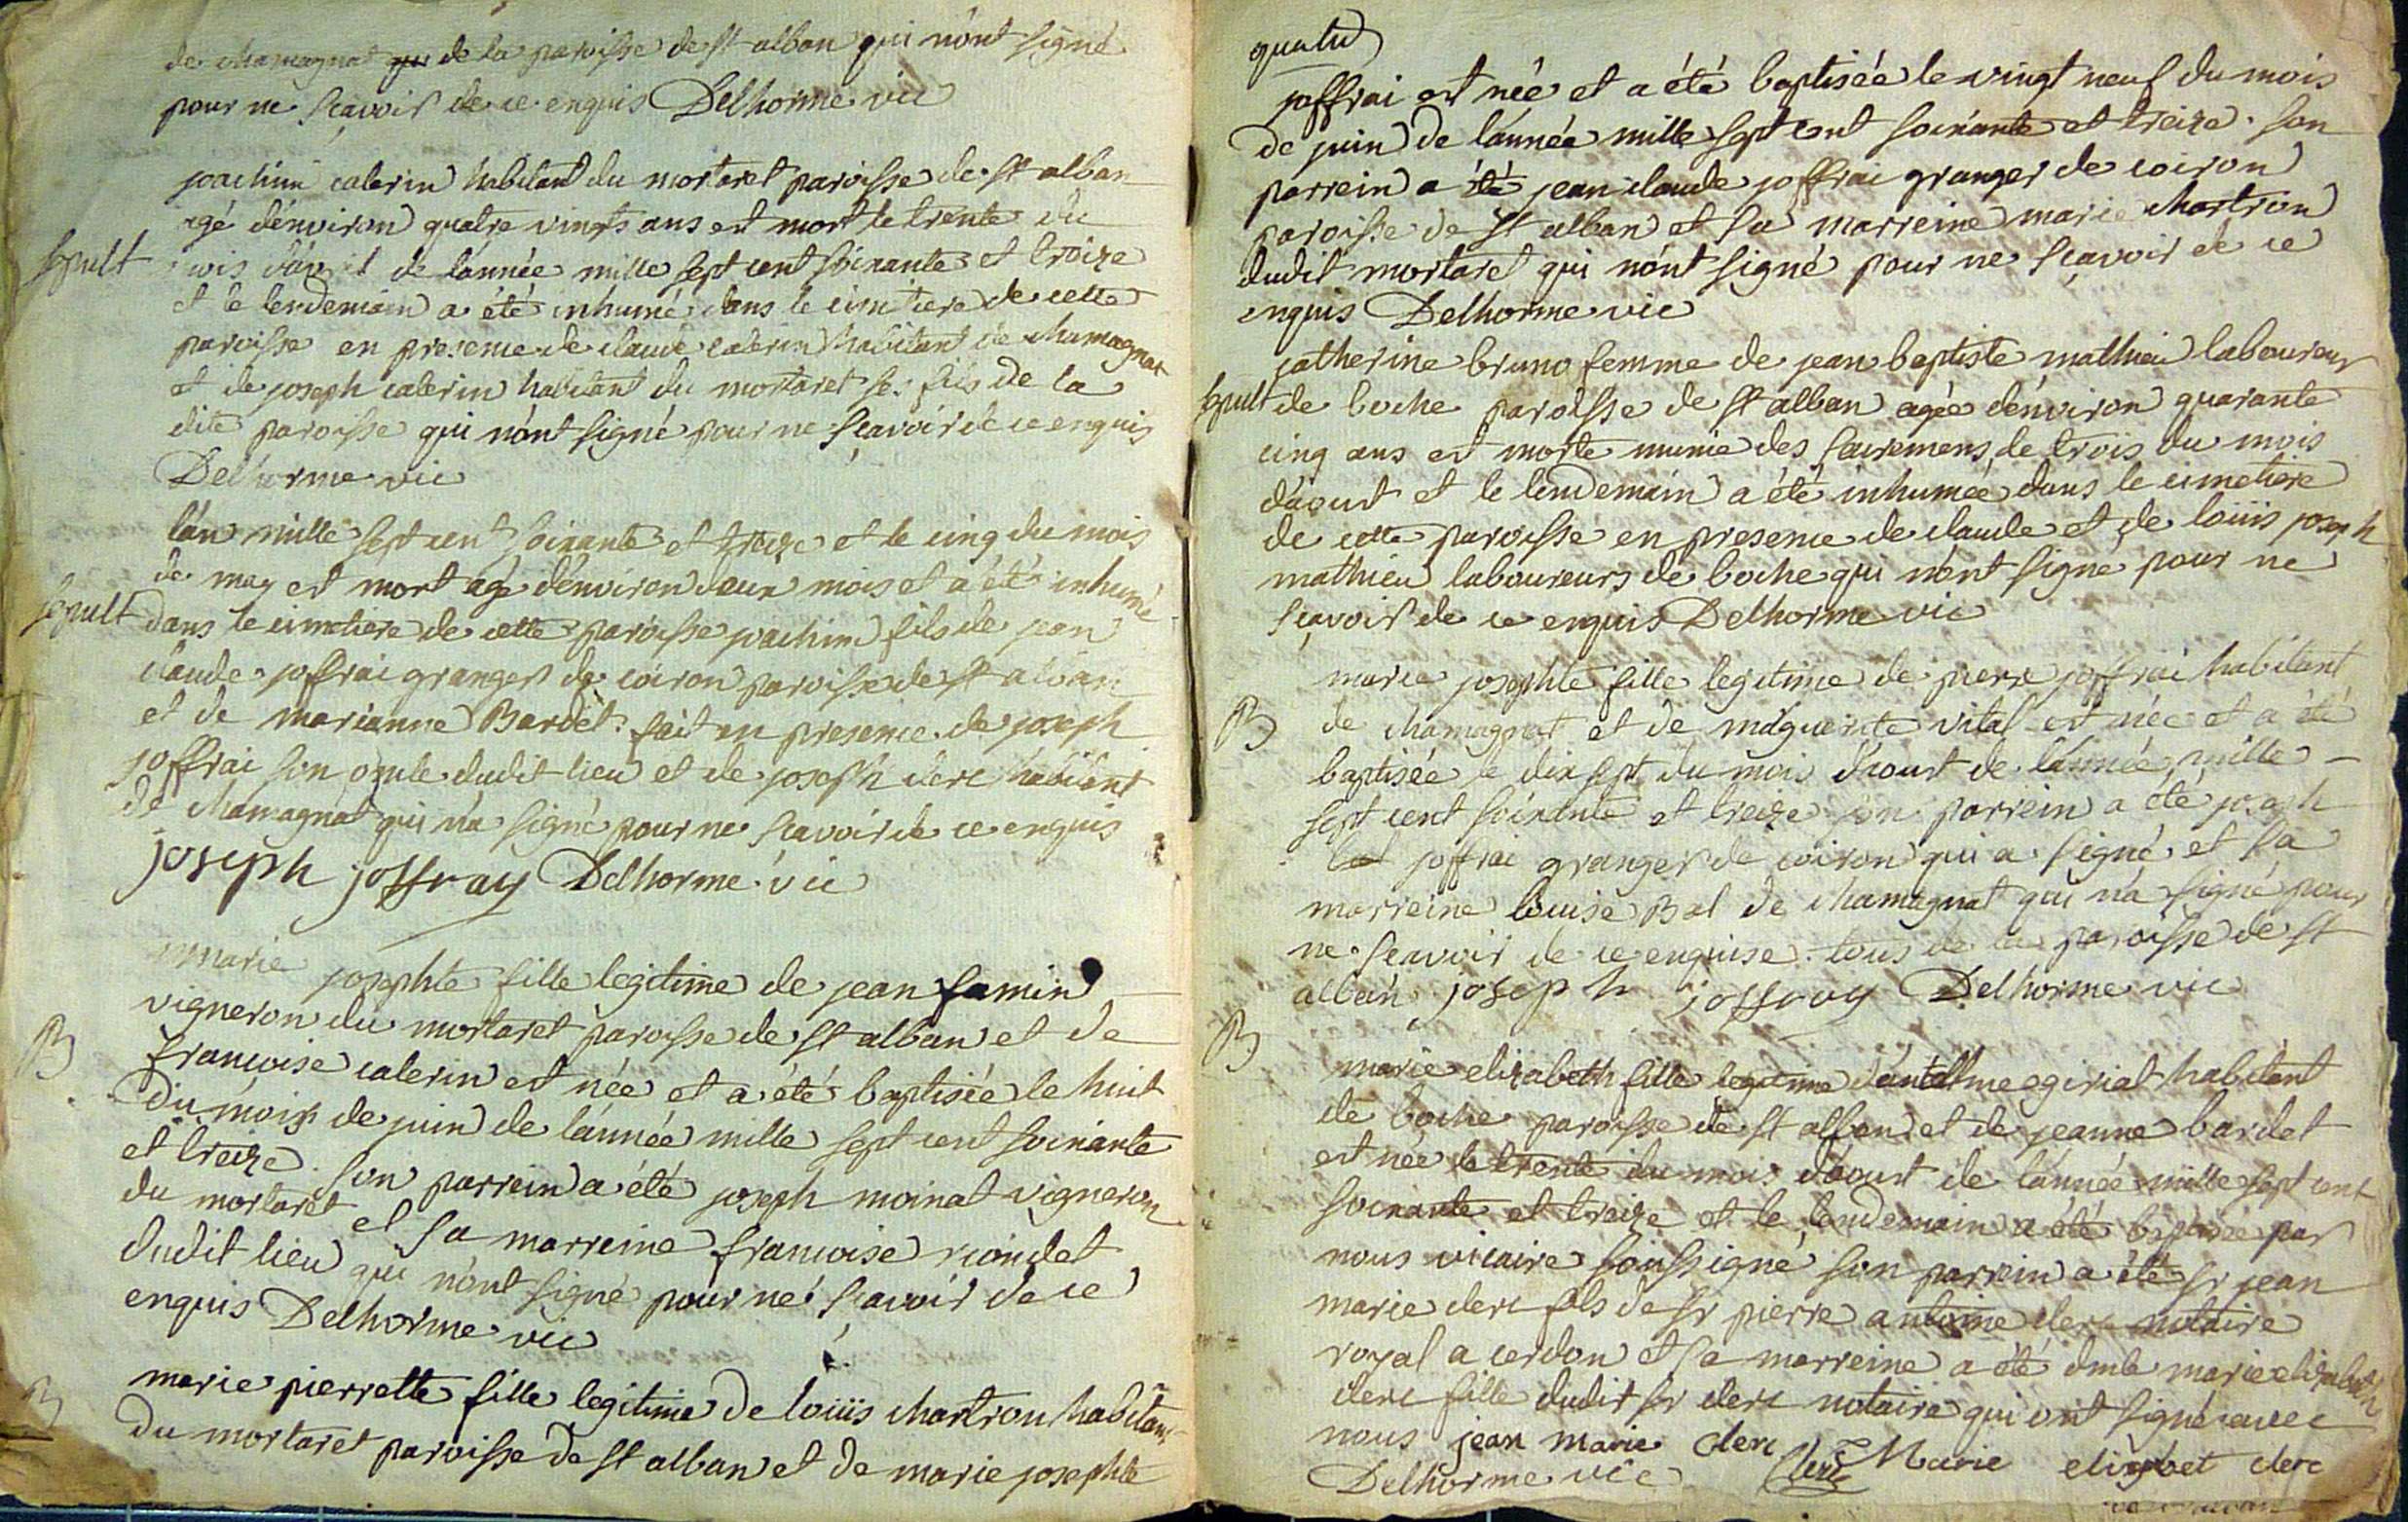 de chamagnat qui de la paroisse de st alban qui n'ont signé
pour ne sçavoir de ce enquis Delhorme vic
joachim calerin habitant du mortaret paroisse de st alban
agé d'environ quatre vingts ans est mort le trente du
sepult mois d'avril de l'année mille sept cent soixante et treize
et le lendemain a été inhumé dans le cimetiere de cette
paroisse en presence de claude calerin habitant de chamagnat
et de joseph calerin habitant du mortaret ses fils de la
dite paroisse qui n'ont signé pour ne sçavoir de ce enquis
Delhorme vic
l'an mille sept cent soixante et treize et le cinq du mois
de may est mort agé d'environ deux mois et a été inhumé
sepult dans le cimetiere de cette paroisse joachim fils de jean
claude joffrai granger de coiron paroisse de st alban
et de marianne Bardet. fait en presence de joseph
joffrai son oncle dudit lieu et de joseph clerc habitant
de chamagnat qui n'a signé pour ne scavoir de ce enquis
joseph joffray Delhorme vic
marie josephte fille legitime de jean famin
vigneron du mortaret paroisse de st alban et de
B francoise calerin est née et a été baptisée le huit
du mois de juin de l'année mille sept cent soixante
et treize. son parrein a été joseph moinat vigneron
du mortaret et sa marreine francoise riondet
dudit lieu qui n'ont signé pour ne sçavoir de ce
enquis Delhorme vic
B marie pierrette fille legitime de loüis chartron habitant
du mortaret paroisse de st alban et de marie josephte
quatre
joffrai est née et a été baptisée le vingt neuf du mois
de juin de l'année mille sept cent soixante et treize. son
parrein a été jean claude joffrai granger de coiron
paroisse de st alban et sa marreine marie chartron
dudit mortaret qui n'ont signé pour ne sçavoir de ce
enquis Delhorme vic
catherine bruno femme de jean baptiste mathieu laboureur
sepult de boche paroisse de st alban agée d'environ quarante
cinq ans est morte munie des sacremens le trois du mois
d'aoust et le lendemain a été inhumée dans le cimetiere
de cette paroisse en presence de claude et de loüis joseph
mathieu laboureurs de boche qui n'ont signé pour ne
sçavoir de ce enquis Delhorme vic
marie josephte fille legitime de pierre joffrai habitant
B de chamagnat et de marguerite vital est née et a été
baptisée le dix sept du mois d'aoust de l'année mille
sept cent soixante et treize son parrein a été joseph
joffrai granger de coiron qui a signé et sa
marreine louise Bal de chamagnat qui n'a signé pour
ne scavoir de ce enquise. tous de la paroisse de st
alban joseph joffray Delhorme vic
B marie elizabeth fille legitime d'antelme egiriat habitant
de boche paroisse de st alban et de jeanne bardet
est née le trente du mois d'aoust de l'année mille sept cent
soixante et treize et le lendemain a été baptisée par
nous vicaire soussigné son parrein a été sr jean
marie clerc fils de sr pierre antoine clerc notaire
royal a cerdon et sa marreine a été dmle marie elizabeth
clerc fille dudit sr clerc notaire qui ont signé avec
nous jean marie clerc Clerc Marie elizabet clerc
Delhorme vic